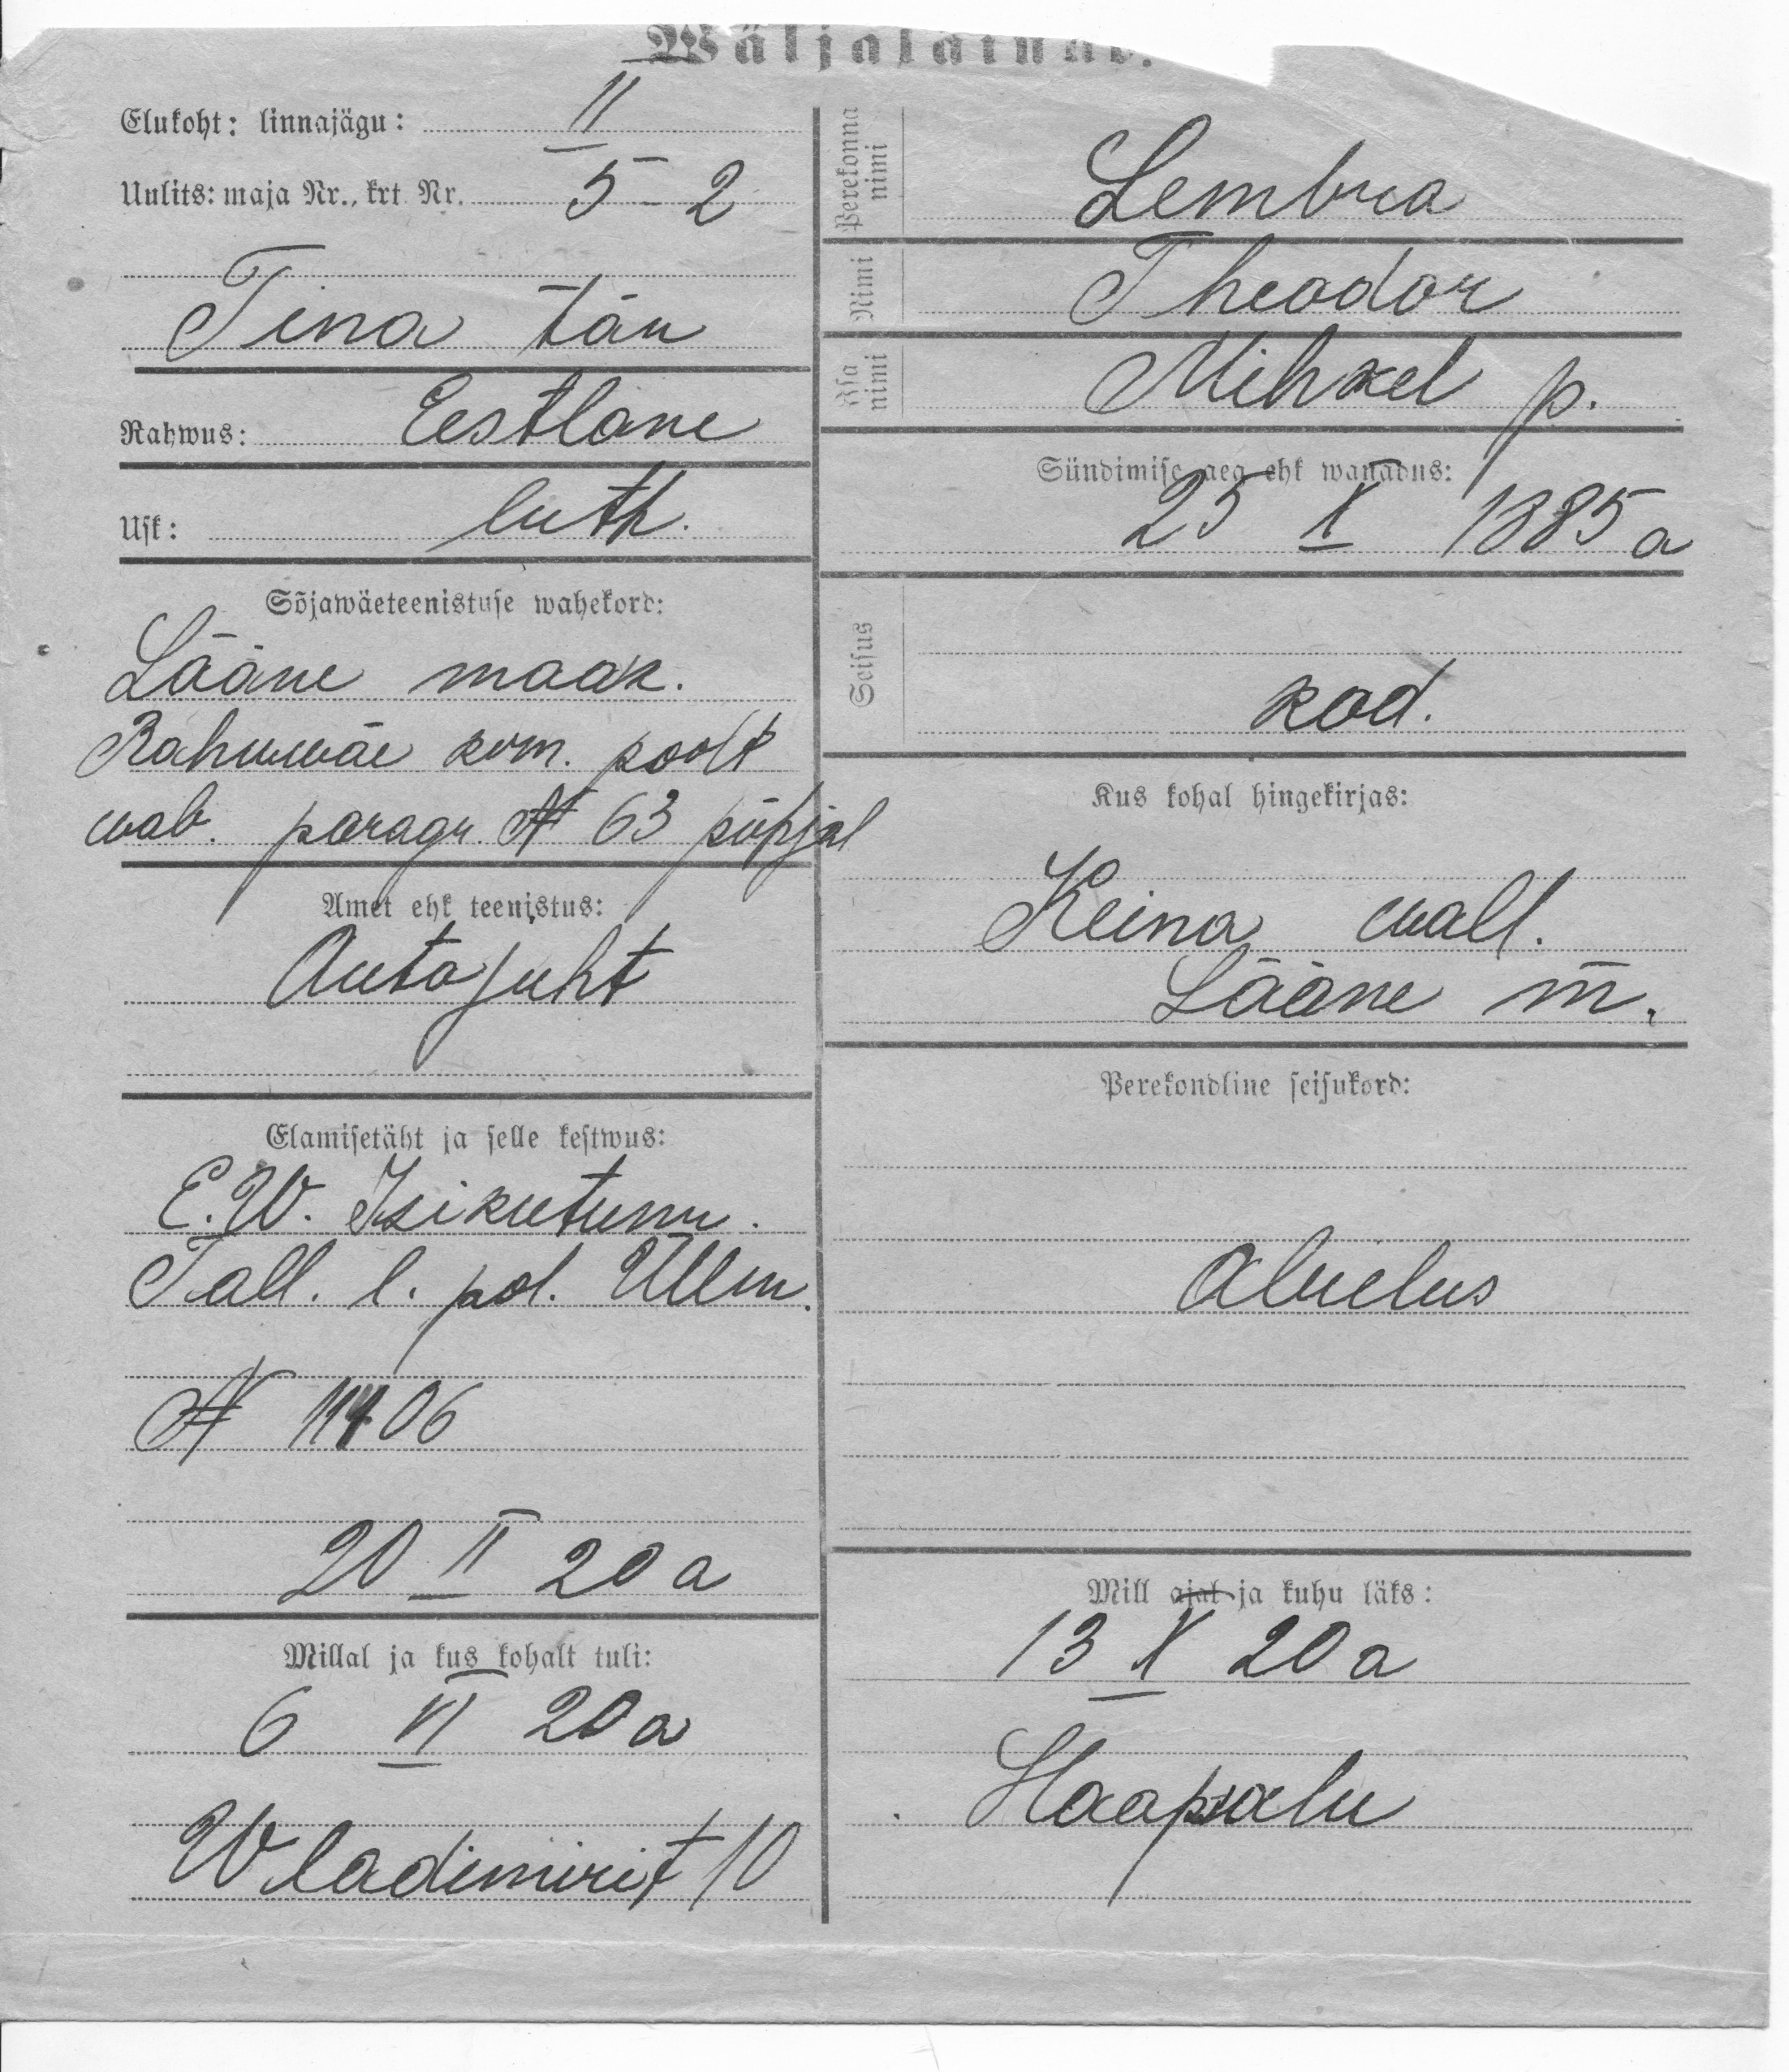 Wäljaläinud.
Elukoht: linnajägu: II
Uulits: maja Nr., krt Nr. 5 - 2
Tina tän
Rahwus: Eestlane
Usk: luth.
Sõjawäeteenistuse wahekord:
Lääne maak.
Rahwawäe kom. poolt
wab. paragr. № 63 põhjal
Amet ehk teenistus:
Autojuht
Elamisetäht ja selle kestwus:
E.W. Isikutunn.
Tall. l. pol. Ülem.
№ 11406
20 II 20 a
Millal ja kus kohalt tuli:
6 VI 20 a
Wladimirit 10
Perekonna nimi
Lembra
Nimi
Theodor
Isa nimi
Mihkel p.
Sündimise aeg ehk wanadus:
25 X 1885 a
Seisus
kod.
Kus kohal hingekirjas:
Keina wall.
Lääne m.
Perekondline seisukord:
abielus
Mill ajal ja kuhu läks:
13 X 20 a
Haapsalu